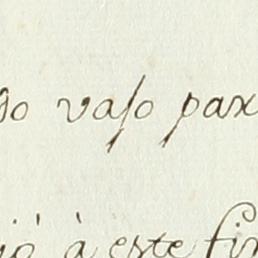 do vaſo pax
ió à este fin